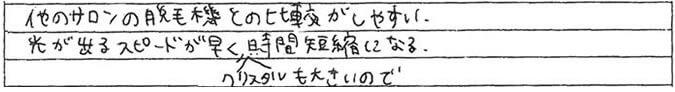 他のサロンの脱毛機との比較がしやすい.
光が出るスピードが早く、時間短縮になる.
クリスタルも大きいので